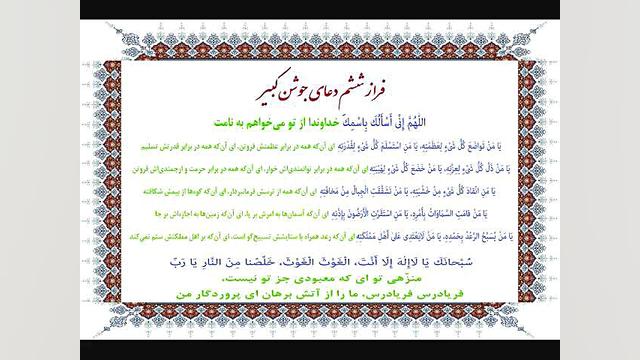 فراز ششم دعای جوشن کبیر
اللَّهُمَّ إِنِّی أَسْأَلُكَ بِاسْمِكَ خداوندا از تو می‌خواهم به نامت
یَا مَنْ تَوَاضَعَ كُلُّ شَیْءٍ لِعَظَمَتِهِ، یَا مَنِ اسْتَسْلَمَ كُلُّ شَیْءٍ لِقُدْرَتِهِ ای آن‌که همه در برابر عظمتش فروتن، ای آن‌که همه در برابر قدرتش تسلیم
یَا مَنْ ذَلَّ كُلُّ شَیْءٍ لِعِزَّتِهِ، یَا مَنْ خَضَعَ كُلُّ شَیْءٍ لِهَیْبَتِهِ ای آن‌که همه در برابر توانمندی‌اش خوار، ای آن‌که همه در برابر حرمت و ارجمندی‌اش فروتن
یَا مَنِ انْقَادَ كُلُّ شَیْءٍ مِنْ خَشْیَتِهِ، یَا مَنْ تَشَقَّقَتِ الْجِبَالُ مِنْ مَخَافَتِهِ ای آن‌که همه از ترسش فرمانبردار، ای آن‌که کوه‌ها از بیمش شکافته
یَا مَنْ قَامَتِ السَّمَاوَاتُ بِأَمْرِهِ، یَا مَنِ اسْتَقَرَّتِ الْأَرَضُونَ بِإِذْنِهِ ای آن‌که آسمان‌ها به امرش بر پا، ای آن‌که زمین‌ها به اجازه‌اش بر جا
یَا مَنْ یُسَبِّحُ الرَّعْدُ بِحَمْدِهِ، یَا مَنْ لَایَعْتَدِی عَلَی أَهْلِ مَمْلَكَتِهِ ای آن‌که رعد همراه با ستایشش تسبیح‌گو است، ای آن‌که بر اهل مملکتش ستم نمی‌کند
سُبْحَانَكَ یَا لَاإِلهَ إِلَّا أَنْتَ، الْغَوْثَ الْغَوْثَ، خَلِّصْنا مِنَ النَّارِ یَا رَبِّ
منزّهی تو ای که معبودی جز تو نیست،
فریادرس فریادرس، ما را از آتش برهان ای پروردگار من